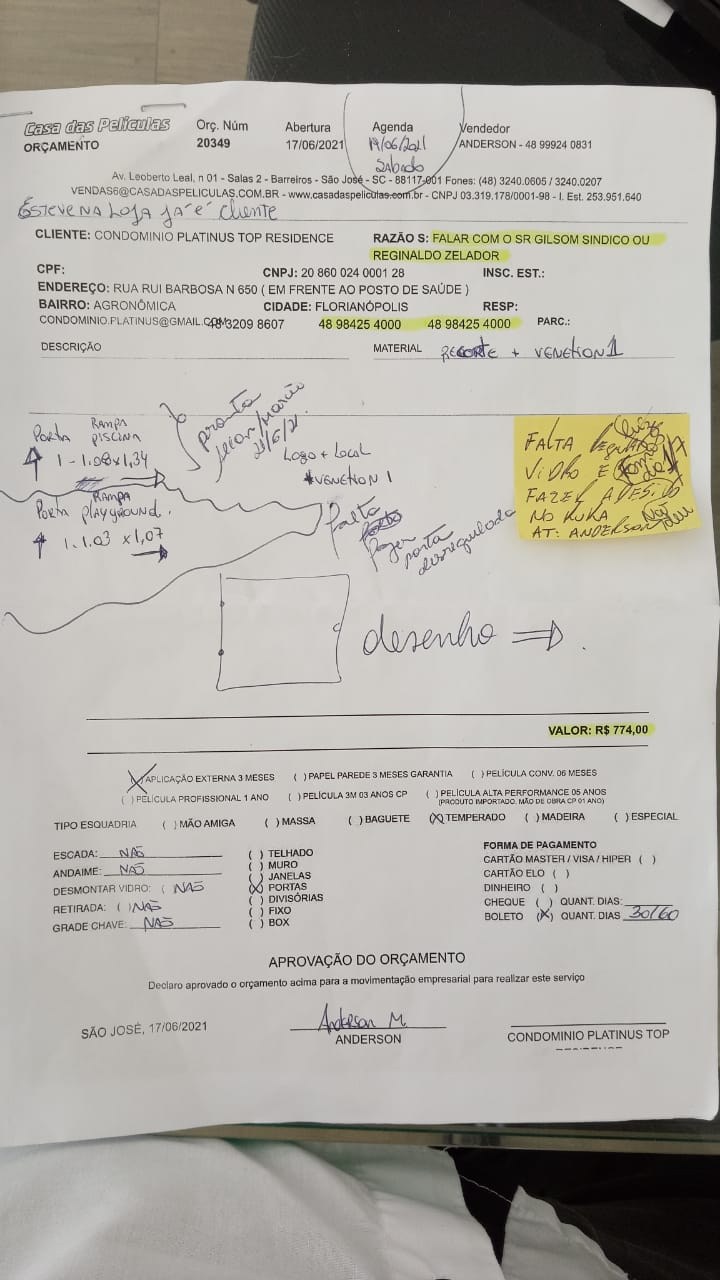 Casa das Películas
ORÇAMENTO
Orç. Núm
20349
Abertura
17/06/2021
Agenda
19/06/2021
SABADO
Vendedor
ANDERSON - 48 99924 0831
Av. Leoberto Leal, n 01 - Salas 2 - Barreiros - São José - SC - 88117-001 Fones: (48) 3240.0605 / 3240.0207
VENDAS6@CASADASPELICULAS.COM.BR - www.casadaspeliculas.com.br - CNPJ 03.319.178/0001-98 - I. Est. 253.951.640
ESTEVE NA LOJA JÁ É CLIENTE
CLIENTE: CONDOMINIO PLATINUS TOP RESIDENCE
RAZÃO S: FALAR COM O SR GILSOM SINDICO OU
REGINALDO ZELADOR
CPF: CNPJ: 20 860 024 0001 28 INSC. EST.:
ENDEREÇO: RUA RUI BARBOSA N 650 ( EM FRENTE AO POSTO DE SAÚDE )
BAIRRO: AGRONÔMICA CIDADE: FLORIANÓPOLIS RESP:
CONDOMINIO.PLATINUS@GMAIL.COM 48 3209 8607 48 98425 4000 48 98425 4000 PARC.:
DESCRIÇÃO MATERIAL RECORTE + VENETION 1
PORTA RAMPA
PISCINA
1 - 1.08x1,34
pronta
23/6/21
LOGO + LOCAL
VENETION 1
RAMPA
PORTA PLAYGROUND.
1. 1.03 x 1,07
falta
fazer porta
desregulada
FALTA
VIDRO E
FAZER ADESIVO
NO KUKA
AT: ANDERSON
desenho
VALOR: R$ 774,00
(X) APLICAÇÃO EXTERNA 3 MESES ( ) PAPEL PAREDE 3 MESES GARANTIA ( ) PELÍCULA CONV. 06 MESES
( ) PELÍCULA PROFISSIONAL 1 ANO ( ) PELÍCULA 3M 03 ANOS CP ( ) PELÍCULA ALTA PERFORMANCE 05 ANOS
(PRODUTO IMPORTADO. MÃO DE OBRA CP 01 ANO)
TIPO ESQUADRIA ( ) MÃO AMIGA ( ) MASSA ( ) BAGUETE (X) TEMPERADO ( ) MADEIRA ( ) ESPECIAL
ESCADA: NÃO
ANDAIME: NÃO
DESMONTAR VIDRO: ( NÃO
RETIRADA: ( ) NÃO
GRADE CHAVE: NÃO
( ) TELHADO
( ) MURO
( ) JANELAS
(X) PORTAS
( ) DIVISÓRIAS
( ) FIXO
( ) BOX
FORMA DE PAGAMENTO
CARTÃO MASTER / VISA / HIPER ( )
CARTÃO ELO ( )
DINHEIRO ( )
CHEQUE ( ) QUANT. DIAS:
BOLETO (X) QUANT. DIAS 30/60
APROVAÇÃO DO ORÇAMENTO
Declaro aprovado o orçamento acima para a movimentação empresarial para realizar este serviço
SÃO JOSÉ, 17/06/2021
Anderson M.
ANDERSON
CONDOMINIO PLATINUS TOP